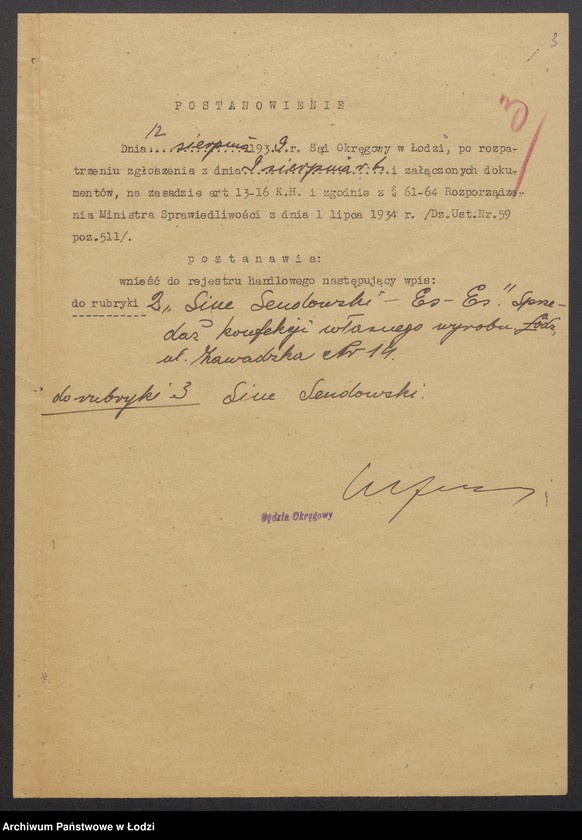 3
POSTANOWIENIE
Dnia 12 sierpnia 1939 r. Sąd Okręgowy w Łodzi, po rozpa-
trzeniu zgłoszenia z dnia 9 sierpnia r.b. i załączonych doku-
mentów, na zasadzie art 13-16 K.H. i zgodnie z § 61-64 Rozporządze-
nia Ministra Sprawiedliwości z dnia 1 lipca 1934 r. /Dz.Ust.Nr.59
poz.511/.
postanawia:
wnieść do rejestru Handlowego następujący wpis:
do rubryki 2 „Sine Sendowski - Es-Es". Sprze-
daż konfekcji własnego wyrobu. Łódź,
ul. Zawadzka Nr 14.
do rubryki 3 Sine Sendowski.
Sędzia Okręgowy
Archiwum Państwowe w Łodzi